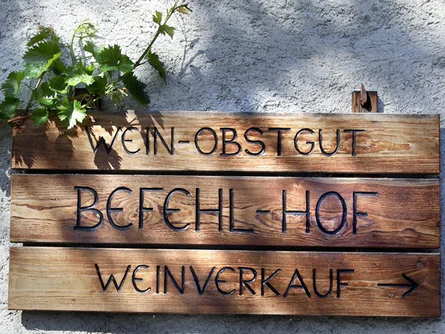 WEIN-OBSTGUT
BEFEHL-HOF
WEINVERKAUF →